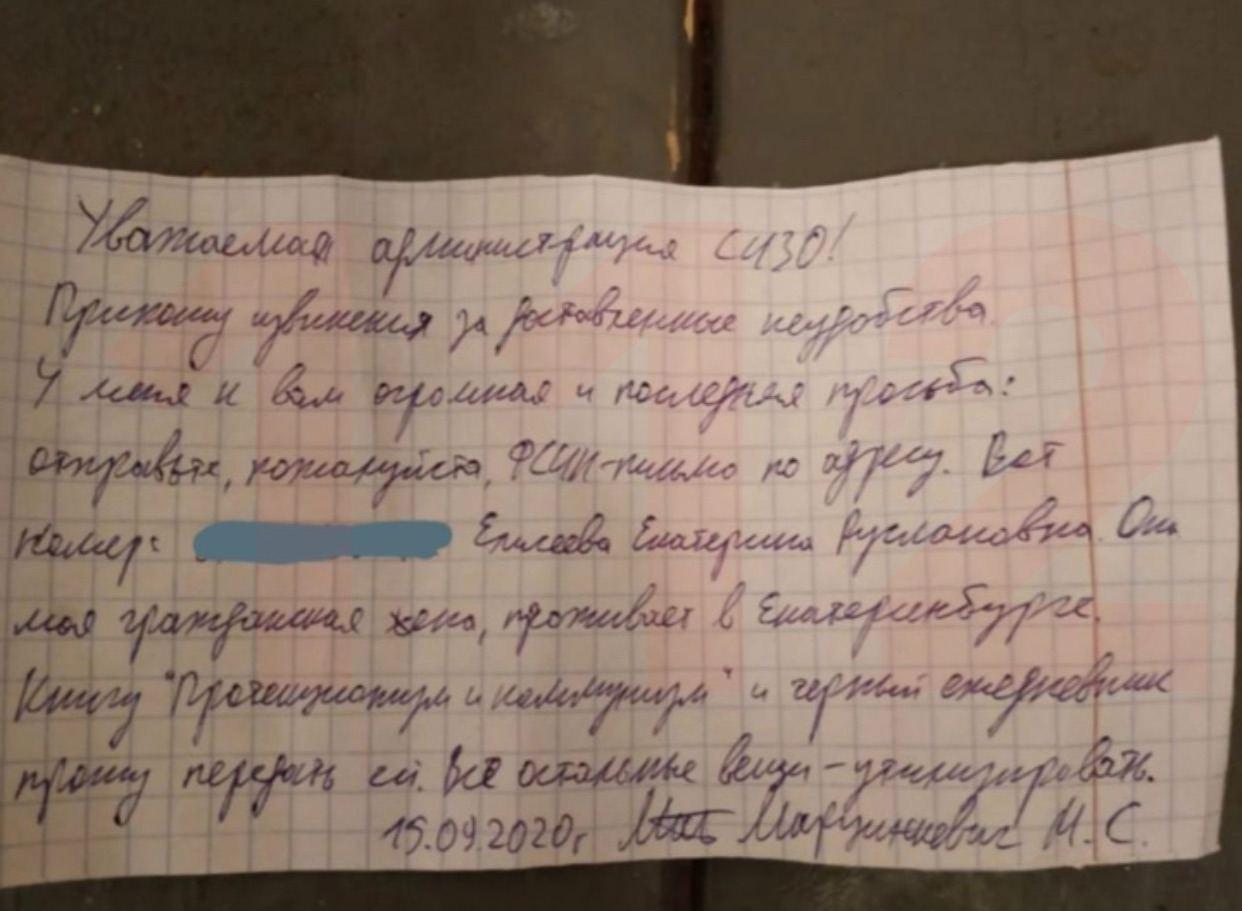 Уважаемая администрация СИЗО!
Приношу извинения за доставленные неудобства.
У меня к вам огромная и последняя просьба:
отправьте, пожалуйста, ФСИН-письмо по адресу. Вот
номер: Елисеева Екатерина Руслановна. Она
моя гражданская жена, проживает в Екатеринбурге.
Книгу "Протекционизм и коммунизм" и черный ежедневник
прошу передать ей. Всё остальные вещи - утилизировать.
15.09.2020г Марцинкевич М.С.
112